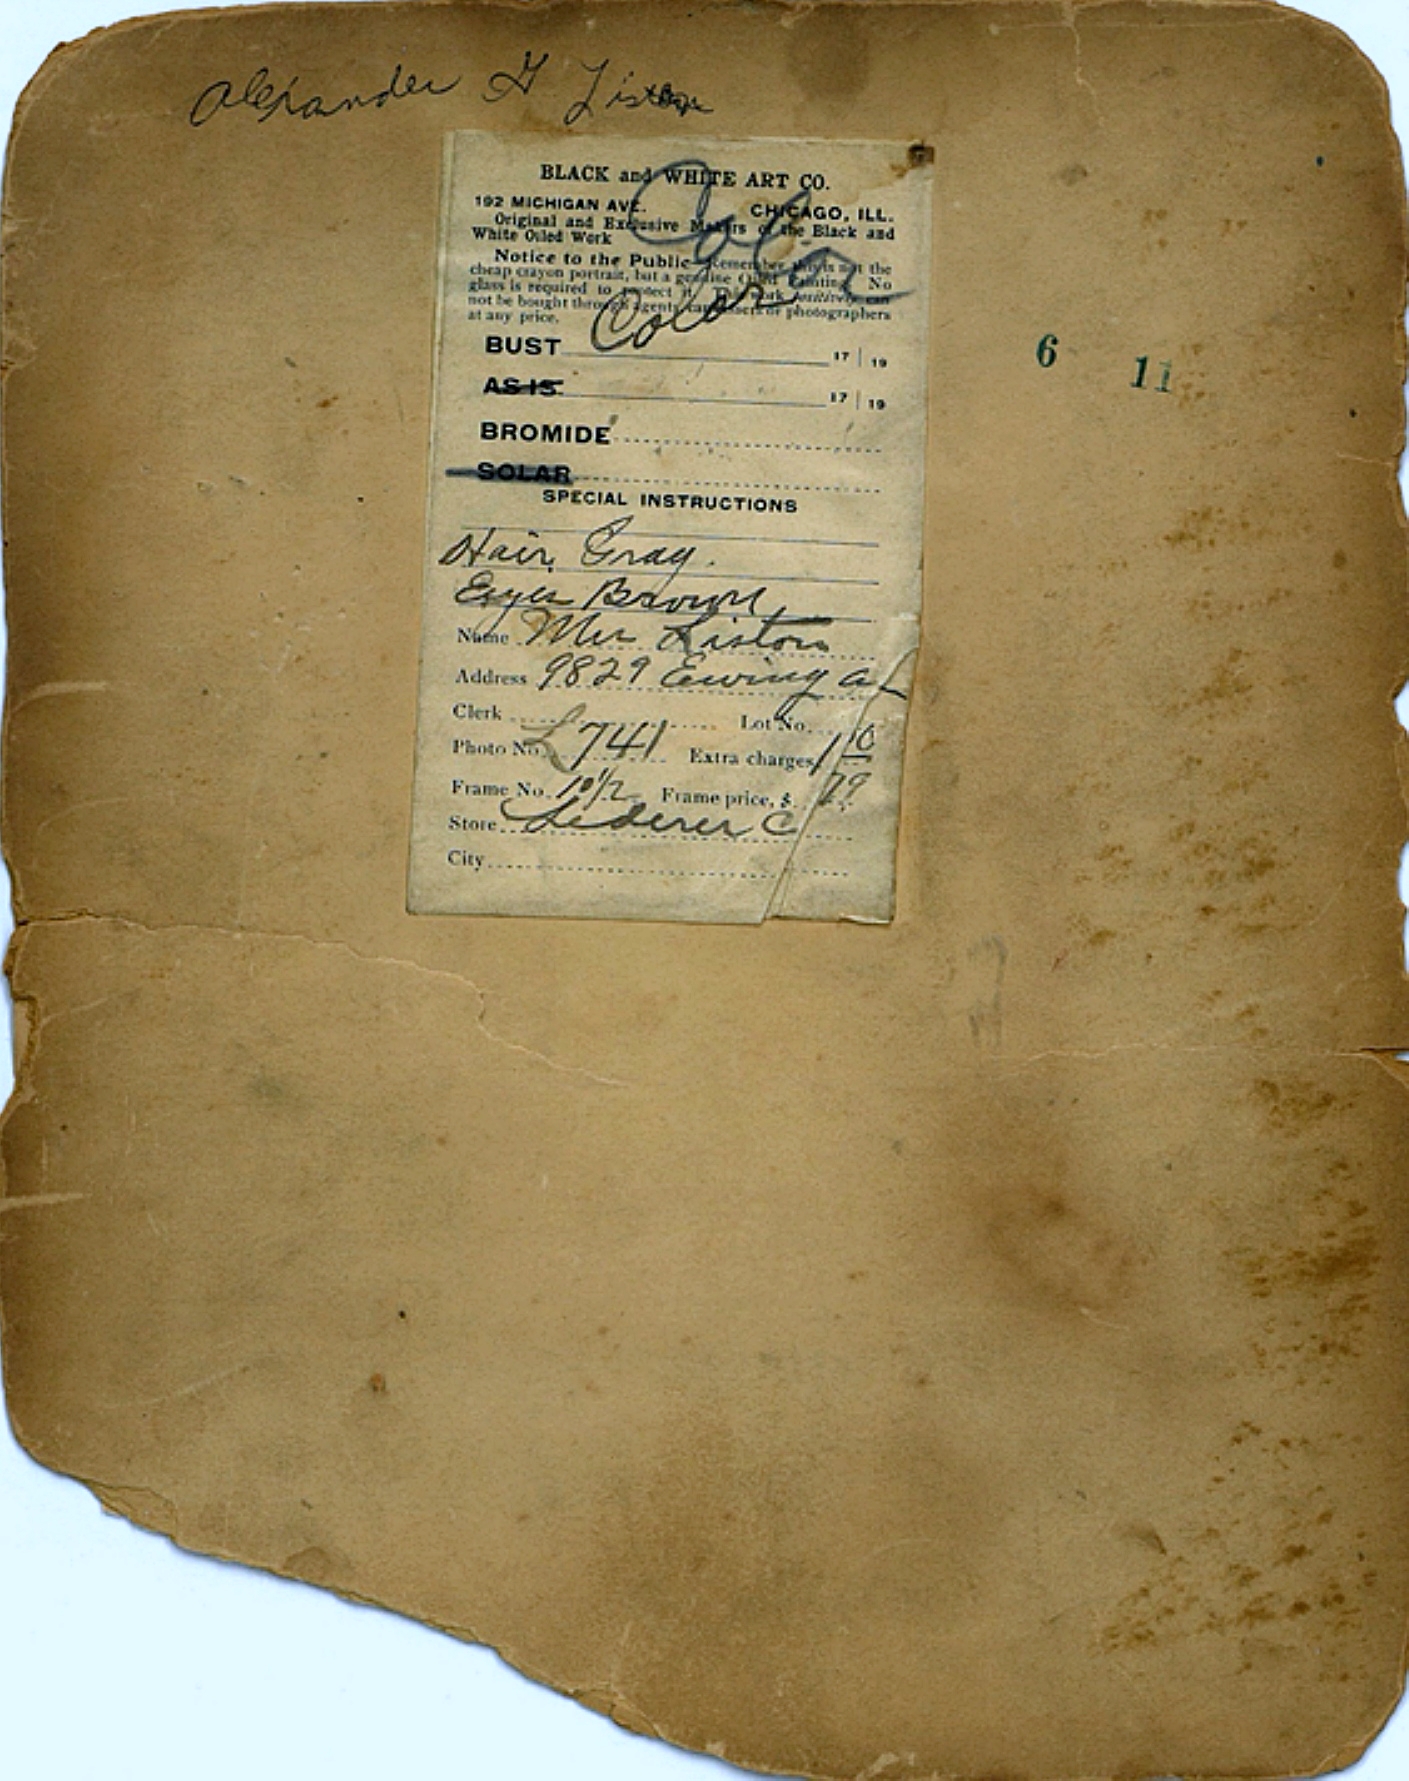 Alexander G Liston
BLACK and WHITE ART CO.
192 MICHIGAN AVE. CHICAGO, ILL.
Original and Exclusive Makers of the Black and
White Oiled Work
Color
Notice to the Public—Remember, this is not the
cheap crayon portrait, but a genuine Oiled Painting. No
glass is required to protect it. This work positively can
not be bought through agents, canvassers or photographers
at any price.
Color
BUST 17 | 19
AS IS 17 | 19
6 11
BROMIDE
SOLAR
SPECIAL INSTRUCTIONS
Hair Gray.
Eyes Brown
Name Mr Liston
Address 9829 Ewing a
Clerk Lot No.
Photo No. L741 Extra charges, 1
Frame No. 10 1/2 Frame price, $ 79
Store Lederer C
City